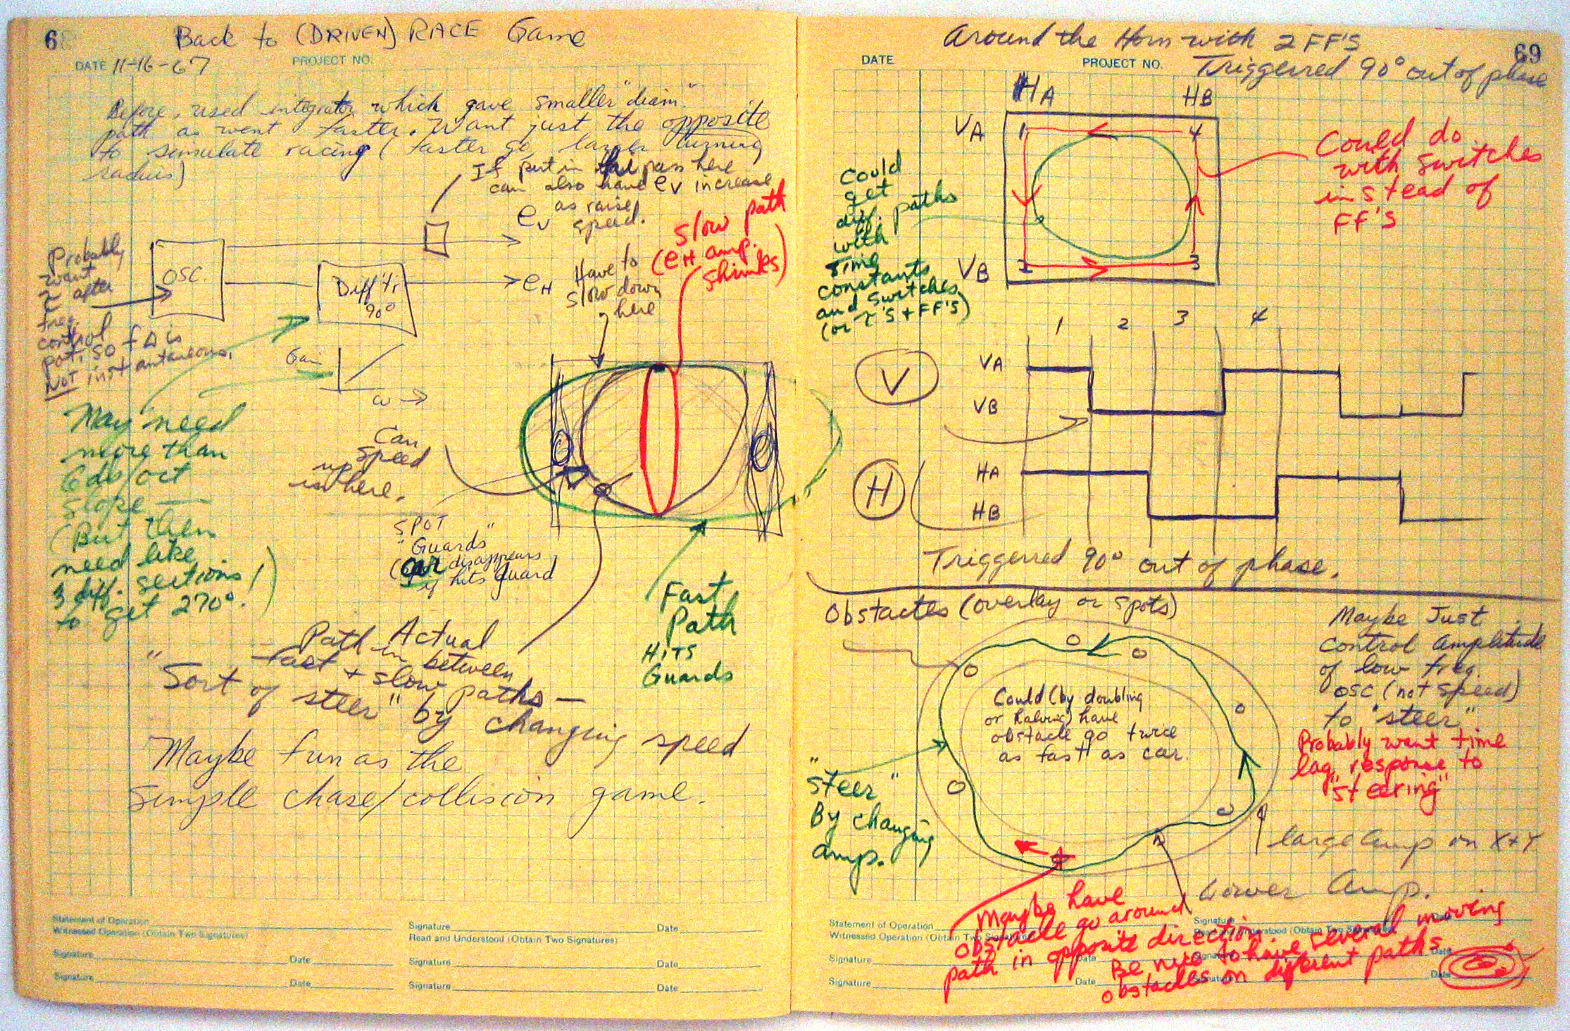 68
Back to (DRIVEN) RACE Game
DATE 11-16-67
PROJECT NO.
Before, used integrator which gave smaller "diam."
path as went faster. Want just the opposite
to simulate racing (faster go, larger turning
radius)
If put in pass here
can also have eV increase
as raise
speed.
eV
OSC.
Diff'tr
90°
eH
Probably
want
τ after
freq.
control
pot. so fΔ is
NOT instantaneous.
Gain
ω →
Have to
slow down
here
Slow path
(eH amp.
shrinks)
May need
more than
6db/oct
slope —
(But then
need like
3 diff. sections
to get 270°.!)
Can
speed
up
in here.
SPOT
"Guards"
(car disappears
if hits guard
Fast
Path
HITS
Guards
Path Actual
in between
fast + slow paths —
"Sort of steer" by changing speed
Maybe fun as the
simple chase/collision game.
Statement of Operation
Witnessed Operation (Obtain Two Signatures)
Signature Date
Signature Date
Signature Date
Read and Understood (Obtain Two Signatures)
Signature Date
Signature Date
69
Around the Horn with 2 FF'S
DATE
PROJECT NO.
Triggerred 90° out of phase
HA HB
VA 1 4
VB 2 3
Could do
with switches
instead of
FF'S
Could
get
diff. paths
with
Time
constants
and switches
(or τ'S + FF'S)
1 2 3 4
V
VA
VB
H
HA
HB
Triggerred 90° out of phase.
Obstacles (overlay or spots)
Could (by doubling
or halving) have
obstacle go twice
as fast as car.
Maybe Just
control amplitude
of low freq.
osc (not speed)
to "steer"
Probably want time
lag response to
"steering"
"steer"
By changing
amp.
large amp on X+Y
Lower Amp.
Maybe have
obstacle go around
path in opposite direction
Be nice to have several moving
obstacles on different paths
Statement of Operation
Witnessed Operation (Obtain Two Signatures)
Signature Date
Signature Date
Signature
Date
Signature Date